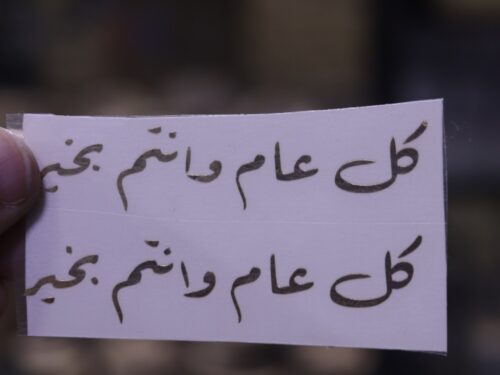 كل عام وانتم بخير
كل عام وانتم بخير